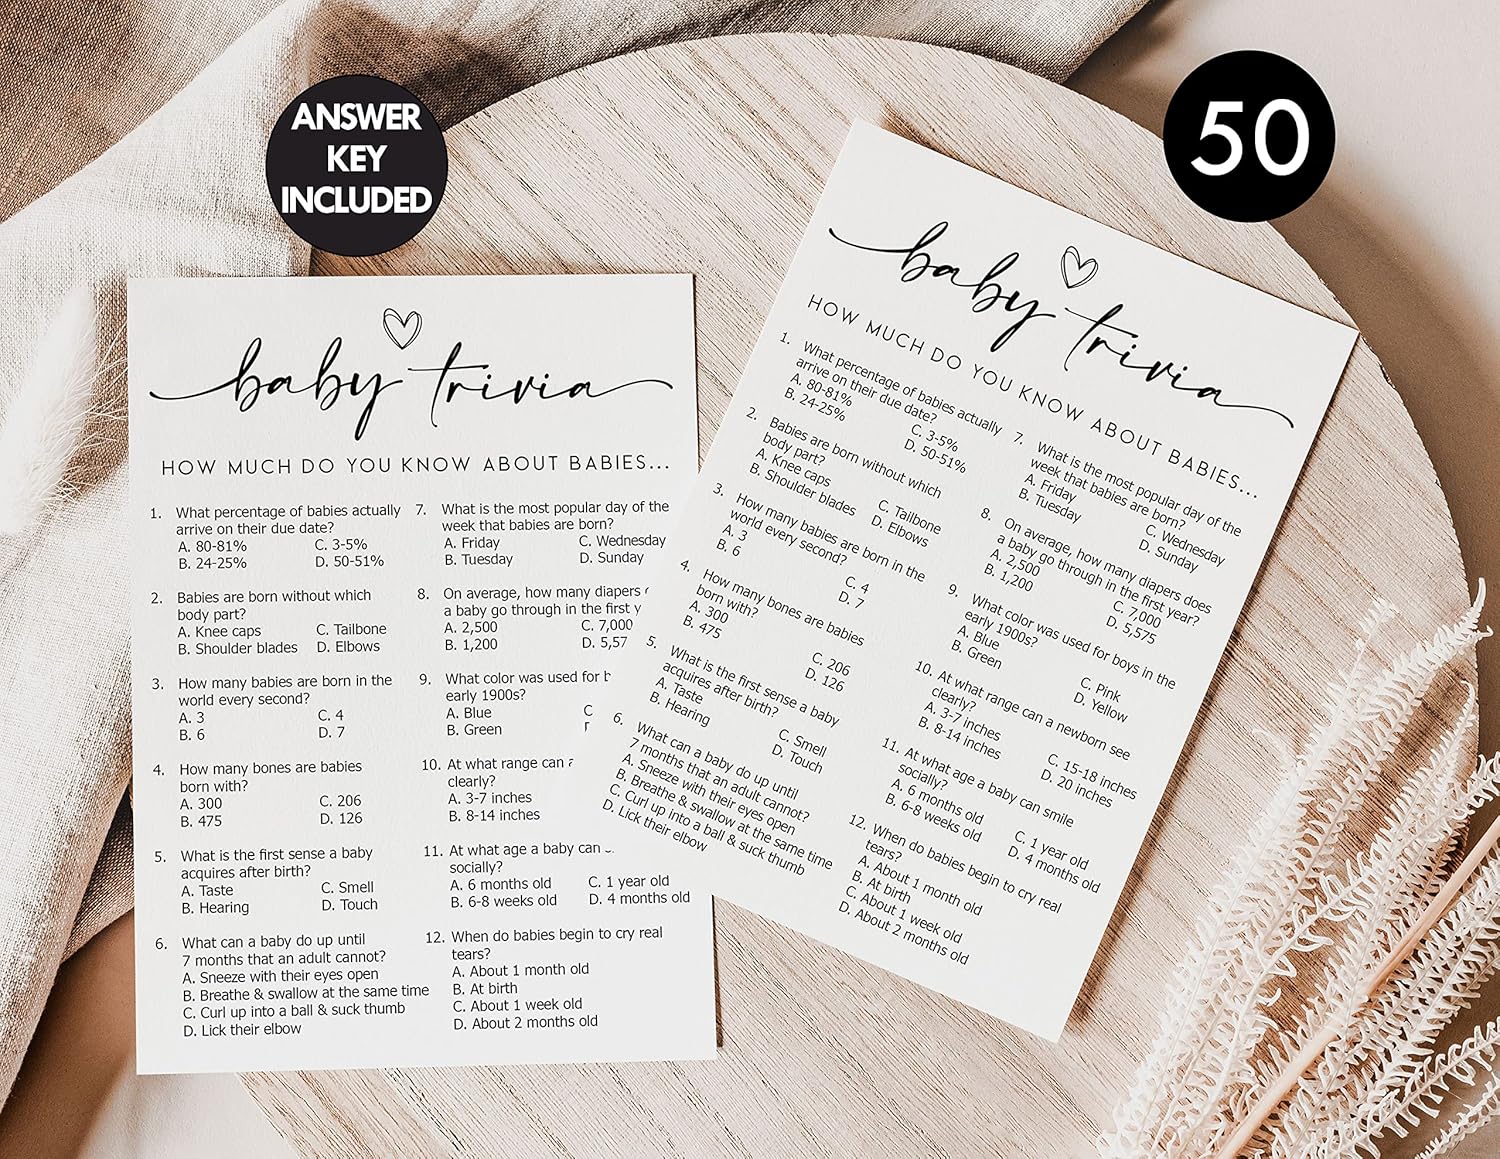 ANSWER
KEY
INCLUDED
50
baby trivia
HOW MUCH DO YOU KNOW ABOUT BABIES...
1. What percentage of babies actually
arrive on their due date?
A. 80-81% C. 3-5%
B. 24-25% D. 50-51%
2. Babies are born without which
body part?
A. Knee caps C. Tailbone
B. Shoulder blades D. Elbows
3. How many babies are born in the
world every second?
A. 3 C. 4
B. 6 D. 7
4. How many bones are babies
born with?
A. 300 C. 206
B. 475 D. 126
5. What is the first sense a baby
acquires after birth?
A. Taste C. Smell
B. Hearing D. Touch
6. What can a baby do up until
7 months that an adult cannot?
A. Sneeze with their eyes open
B. Breathe & swallow at the same time
C. Curl up into a ball & suck thumb
D. Lick their elbow
7. What is the most popular day of the
week that babies are born?
A. Friday C. Wednesday
B. Tuesday D. Sunday
8. On average, how many diapers
a baby go through in the first y
A. 2,500 C. 7,000
B. 1,200 D. 5,57
9. What color was used for b
early 1900s?
A. Blue C
B. Green
10. At what range can a
clearly?
A. 3-7 inches
B. 8-14 inches
11. At what age a baby can
socially?
A. 6 months old C. 1 year old
B. 6-8 weeks old D. 4 months old
12. When do babies begin to cry real
tears?
A. About 1 month old
B. At birth
C. About 1 week old
D. About 2 months old
baby trivia
HOW MUCH DO YOU KNOW ABOUT BABIES...
1. What percentage of babies actually
arrive on their due date?
A. 80-81% C. 3-5%
B. 24-25% D. 50-51%
2. Babies are born without which
body part?
A. Knee caps C. Tailbone
B. Shoulder blades D. Elbows
3. How many babies are born in the
world every second?
A. 3 C. 4
B. 6 D. 7
4. How many bones are babies
born with?
A. 300 C. 206
B. 475 D. 126
5. What is the first sense a baby
acquires after birth?
A. Taste C. Smell
B. Hearing D. Touch
6. What can a baby do up until
7 months that an adult cannot?
A. Sneeze with their eyes open
B. Breathe & swallow at the same time
C. Curl up into a ball & suck thumb
D. Lick their elbow
7. What is the most popular day of the
week that babies are born?
A. Friday C. Wednesday
B. Tuesday D. Sunday
8. On average, how many diapers does
a baby go through in the first year?
A. 2,500 C. 7,000
B. 1,200 D. 5,575
9. What color was used for boys in the
early 1900s?
A. Blue C. Pink
B. Green D. Yellow
10. At what range can a newborn see
clearly?
A. 3-7 inches C. 15-18 inches
B. 8-14 inches D. 20 inches
11. At what age a baby can smile
socially?
A. 6 months old C. 1 year old
B. 6-8 weeks old D. 4 months old
12. When do babies begin to cry real
tears?
A. About 1 month old
B. At birth
C. About 1 week old
D. About 2 months old